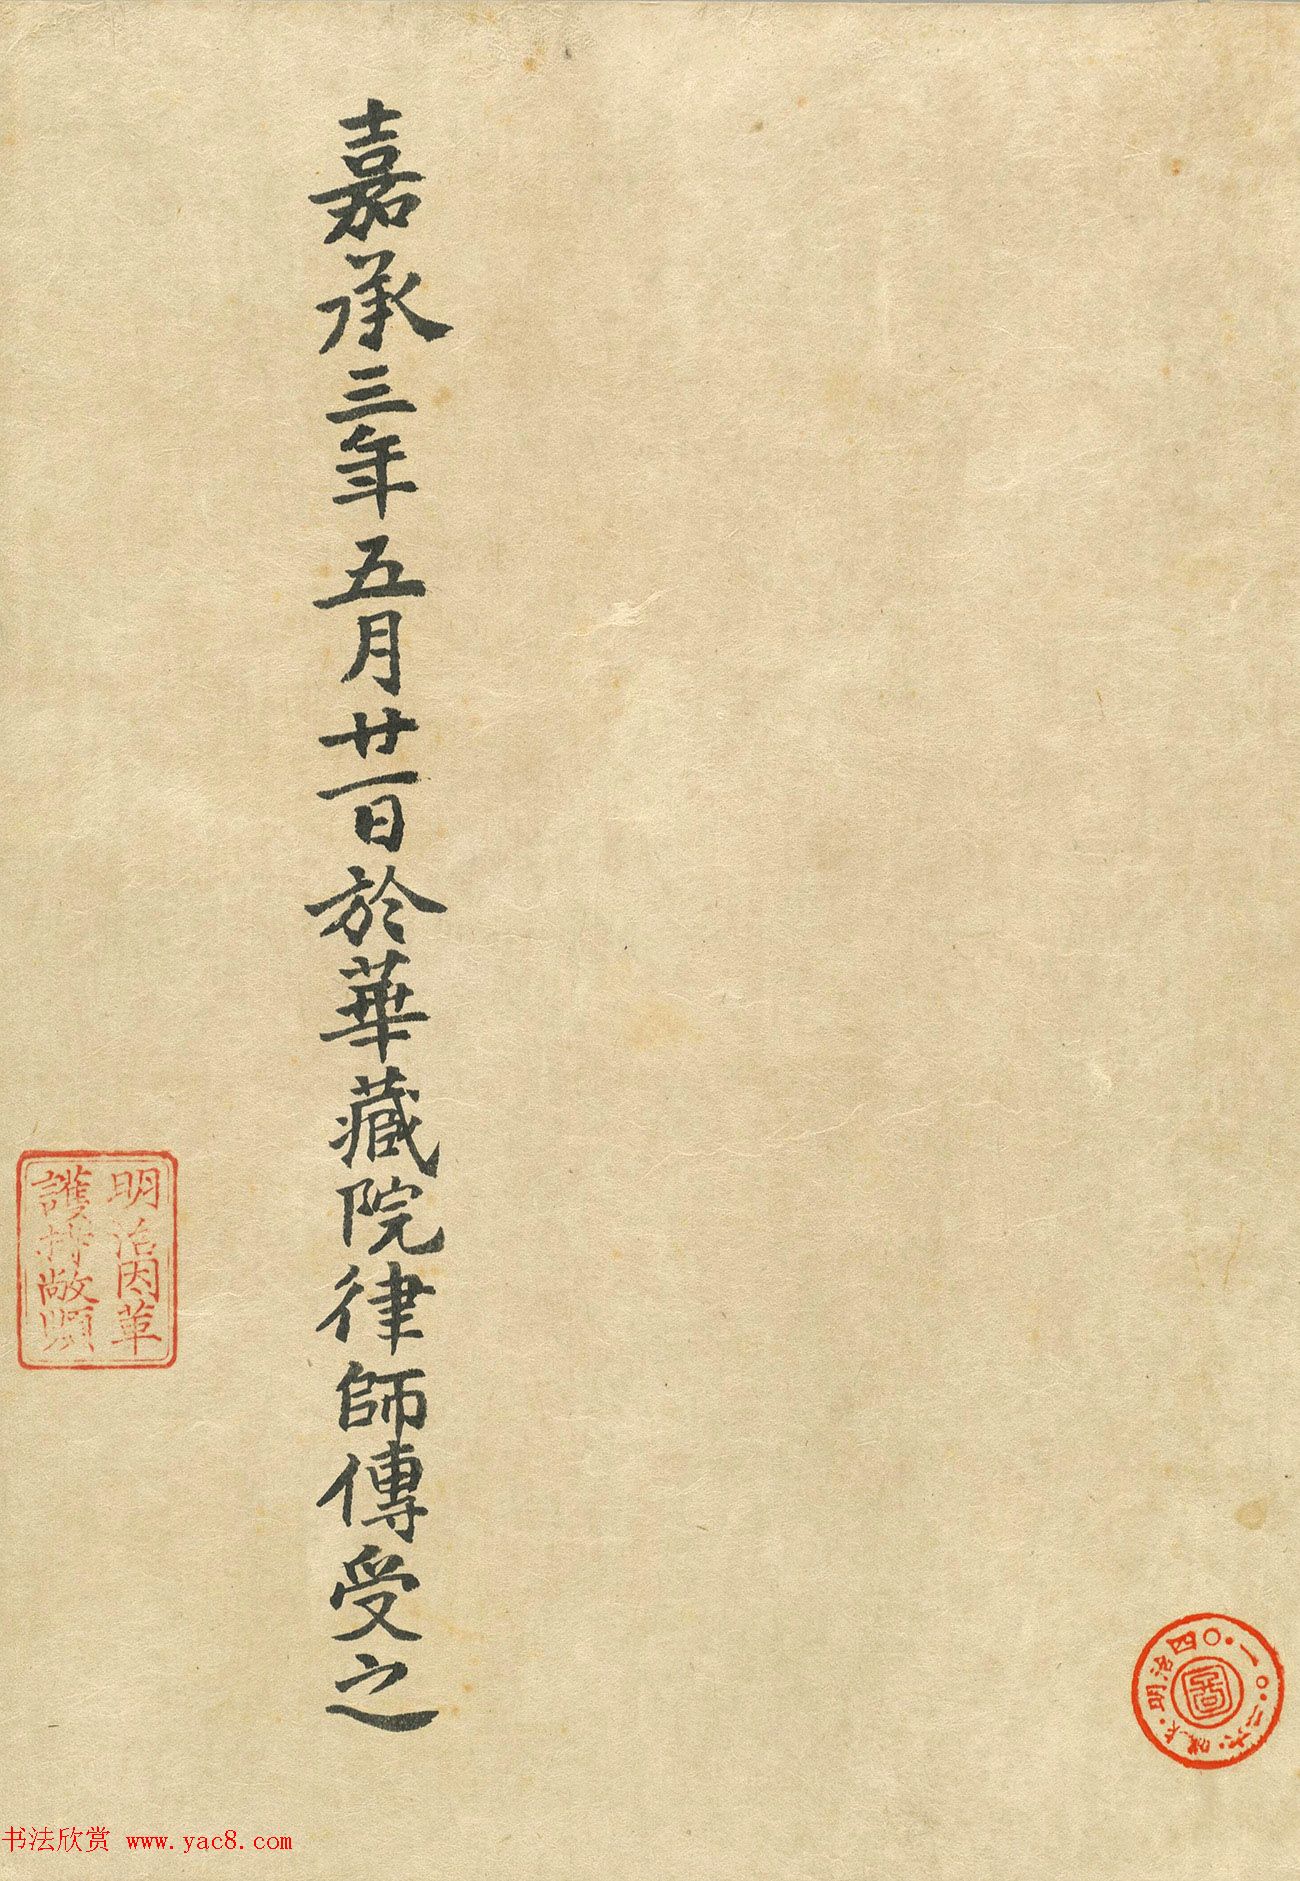 嘉承三年五月廿一日於華藏院律師傳受之
明治因革
護持敞順
明治四〇·一〇·二六·
圖
书法欣赏 www.yac8.com